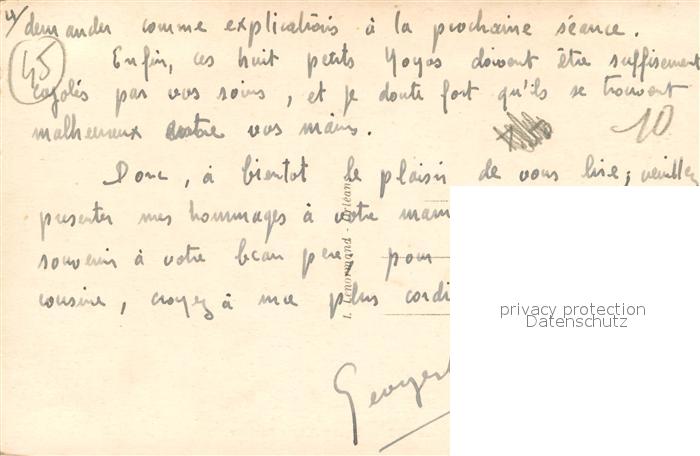 4/ demander comme explications à la prochaine séance.
45
Enfin, ces huit petits Yoyos doivent être suffisement
cajolés par vos soins, et je doute fort qu'ils se trouvent
malheureux entre vos mains.
10
Donc, à bientot le plaisir de vous lire; veuillez
presenter mes hommages à votre mam
souvenir à votre beau pere, pour
cousine, croyez à me plus cordi
Georges
I. Lenormand - Orléans
privacy protection
Datenschutz